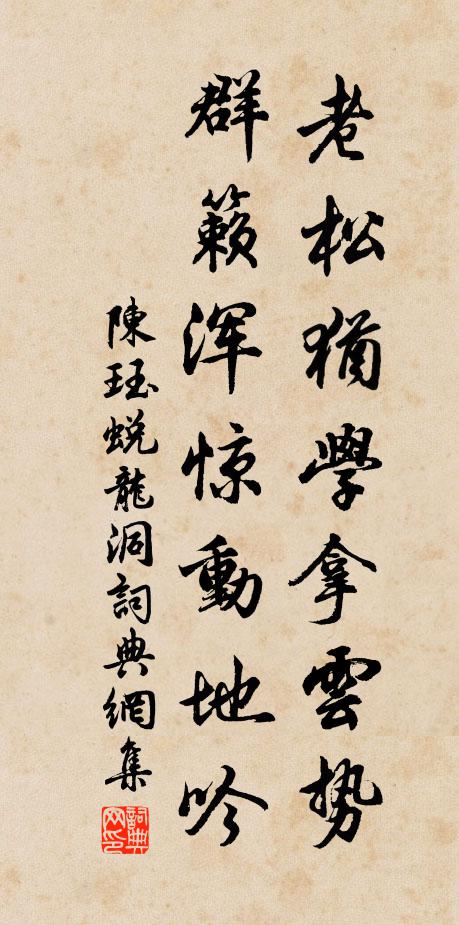 老松猶學拿雲势
群籁浑惊動地吟
陳珏蜕龍洞詞典網集
詞典网印